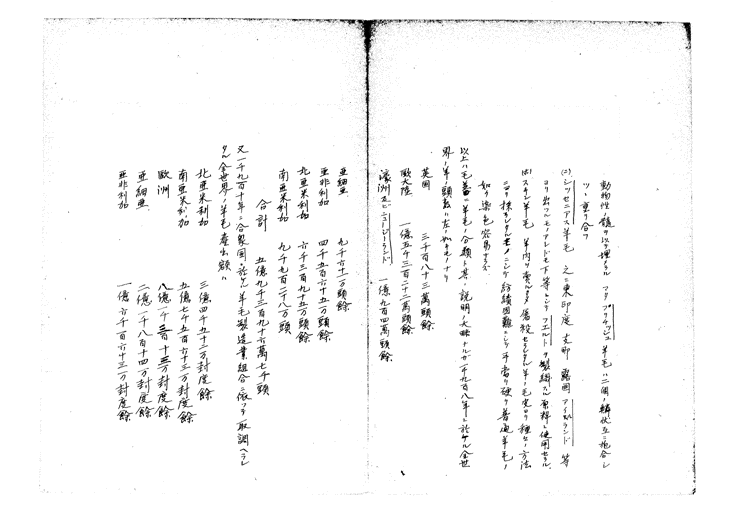 動物性ノ髄ヲ以テ埋メラル 又タブリチッシュ羊毛ハ二個ノ鱗状互ニ抱合シ
ツヽ重リ合フ
(ニ)シツセニアス羊毛 之ニ東印度 支那 露国 アイスランド 等
ヨリ出ヅルモノアレド下等ニシテフエルトヲ製絹スル原料ニ使用セラル
(ホ)スキン羊毛 羊肉ヲ売ルタメ屠殺セラルヽ羊ノ毛皮ヨリ種々ノ方法
ニヨリ採ラレタルモノニシテ紡績困難ニシテ手当リ硬ク普通羊毛ノ
如ク染色容易ナラズ
以上ハ毛並ニ羊毛ノ分類ト其ノ説明ノ大略ナルガ一千九百八年ニ於ケル全世
界ノ羊ノ頭数ハ左ノ如キモノナリ
英国 三千百八十三萬頭餘
欧大陸 一億五千三百二十二萬頭餘
濠洲及ビニュージーランド 一億九百四萬頭餘
亜細亜 九千六十一万頭餘
亜非利加 四千五百六十五万頭餘
北亜米利加 六千三百九十五万頭餘
南亜米利加 九千七百二十八万頭
合計 五億九千三百九十六萬七千頭
又一千九百十年ニ合衆国ニ於ケル羊毛製造業組合ニ依ツテ取調ヘラレ
タル全世界ノ羊毛産出額ハ
北亜米利加 三億四千九十二万封度餘
南亜米利加 五億七千五百六十三万封度餘
欧洲 八億一千三百十三万封度餘
亜細亜 二億一千八百十四万封度餘
亜非利加 一億六千一百六十三万封度餘